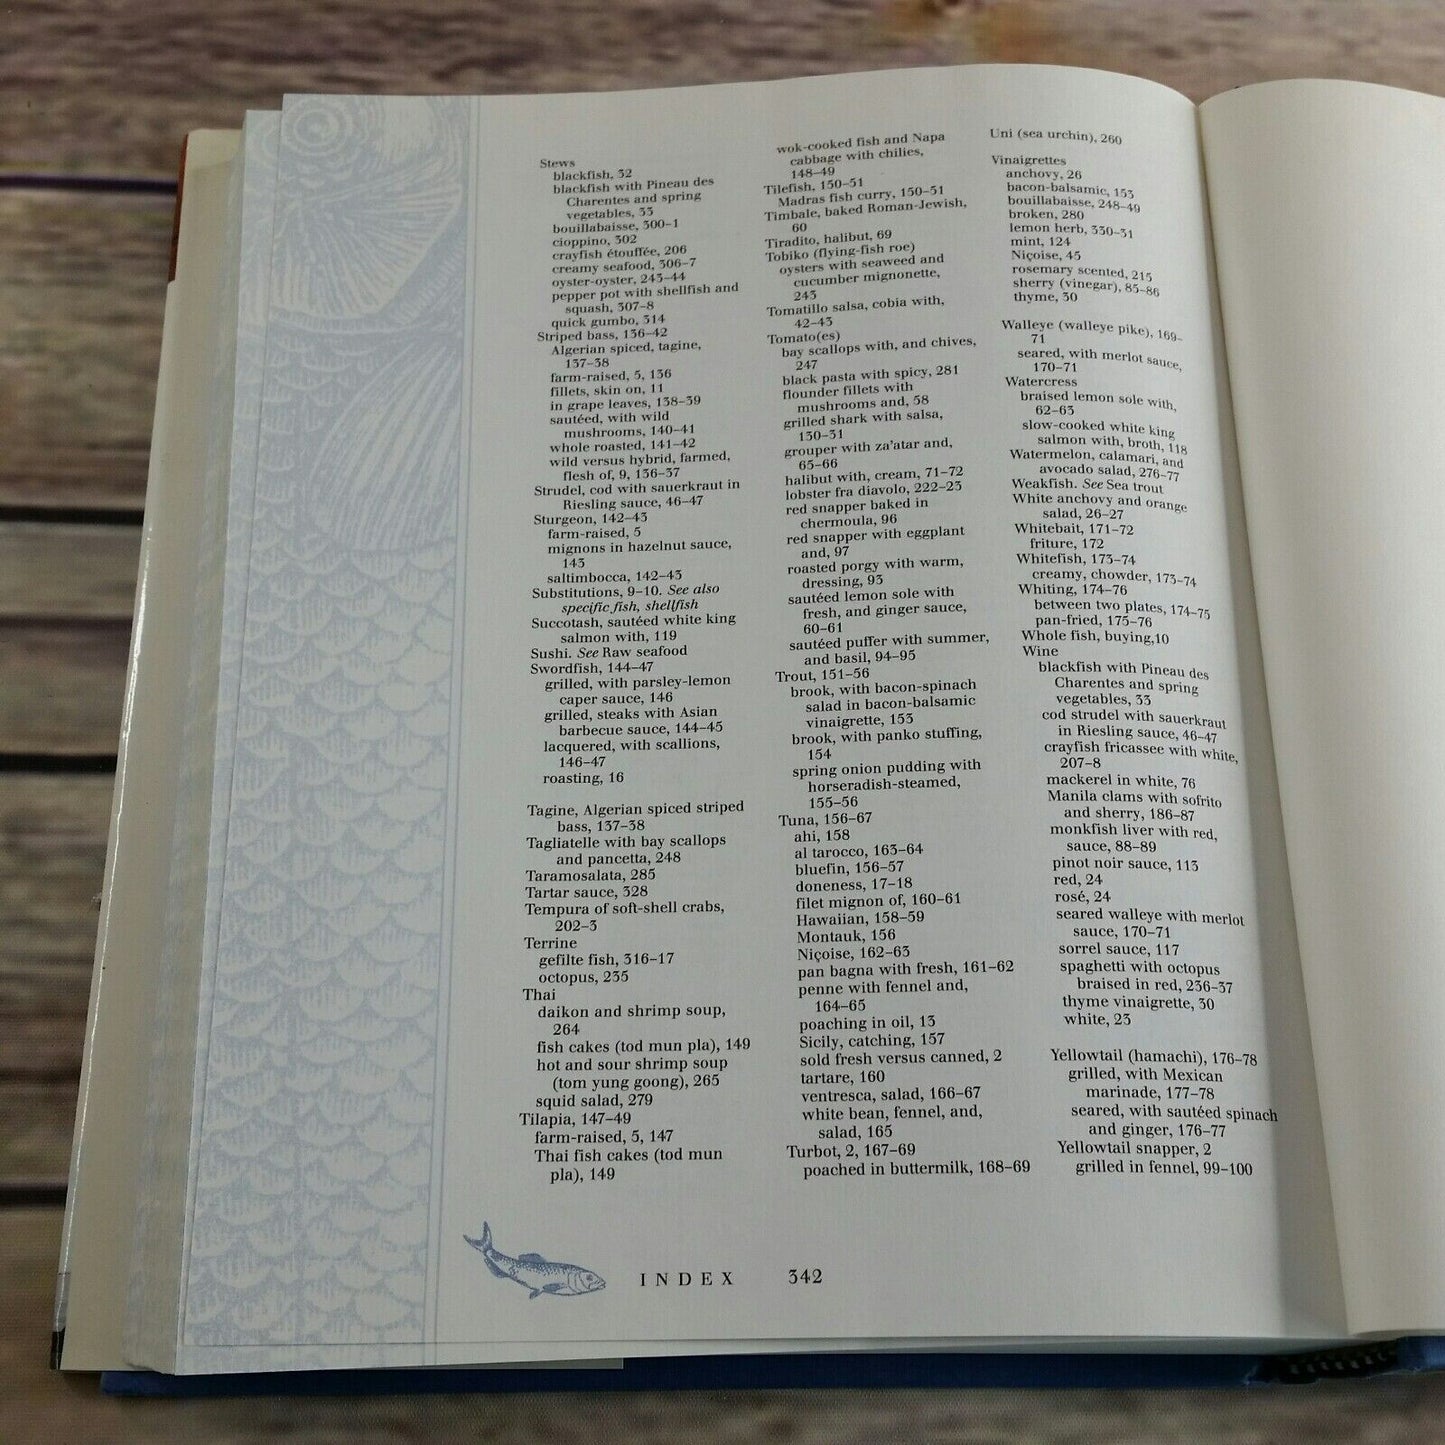 Stews
blackfish, 32
blackfish with Pineau des
Charentes and spring
vegetables, 33
bouillabaisse, 300–1
cioppino, 302
crayfish étouffée, 206
creamy seafood, 306–7
oyster-oyster, 243–44
pepper pot with shellfish and
squash, 307–8
quick gumbo, 314
Striped bass, 136–42
Algerian spiced, tagine,
137–38
farm-raised, 5, 136
fillets, skin on, 11
in grape leaves, 138–39
sautéed, with wild
mushrooms, 140–41
whole roasted, 141–42
wild versus hybrid, farmed,
flesh of, 9, 136–37
Strudel, cod with sauerkraut in
Riesling sauce, 46–47
Sturgeon, 142–43
farm-raised, 5
mignons in hazelnut sauce,
143
saltimbocca, 142–43
Substitutions, 9–10. See also
specific fish, shellfish
Succotash, sautéed white king
salmon with, 119
Sushi. See Raw seafood
Swordfish, 144–47
grilled, with parsley-lemon
caper sauce, 146
grilled, steaks with Asian
barbecue sauce, 144–45
lacquered, with scallions,
146–47
roasting, 16
Tagine, Algerian spiced striped
bass, 137–38
Tagliatelle with bay scallops
and pancetta, 248
Taramosalata, 285
Tartar sauce, 328
Tempura of soft-shell crabs,
202–3
Terrine
gefilte fish, 316–17
octopus, 235
Thai
daikon and shrimp soup,
264
fish cakes (tod mun pla), 149
hot and sour shrimp soup
(tom yung goong), 265
squid salad, 279
Tilapia, 147–49
farm-raised, 5, 147
Thai fish cakes (tod mun
pla), 149
wok-cooked fish and Napa
cabbage with chilies,
148–49
Tilefish, 150–51
Madras fish curry, 150–51
Timbale, baked Roman-Jewish,
60
Tiradito, halibut, 69
Tobiko (flying-fish roe)
oysters with seaweed and
cucumber mignonette,
243
Tomatillo salsa, cobia with,
42–43
Tomato(es)
bay scallops with, and chives,
247
black pasta with spicy, 281
flounder fillets with
mushrooms and, 58
grilled shark with salsa,
130–31
grouper with za'atar and,
65–66
halibut with, cream, 71–72
lobster fra diavolo, 222–23
red snapper baked in
chermoula, 96
red snapper with eggplant
and, 97
roasted porgy with warm,
dressing, 93
sautéed lemon sole with
fresh, and ginger sauce,
60–61
sautéed puffer with summer,
and basil, 94–95
Trout, 151–56
brook, with bacon-spinach
salad in bacon-balsamic
vinaigrette, 153
brook, with panko stuffing,
154
spring onion pudding with
horseradish-steamed,
155–56
Tuna, 156–67
ahi, 158
al tarocco, 163–64
bluefin, 156–57
doneness, 17–18
filet mignon of, 160–61
Hawaiian, 158–59
Montauk, 156
Niçoise, 162–63
pan bagna with fresh, 161–62
penne with fennel and,
164–65
poaching in oil, 13
Sicily, catching, 157
sold fresh versus canned, 2
tartare, 160
ventresca, salad, 166–67
white bean, fennel, and,
salad, 165
Turbot, 2, 167–69
poached in buttermilk, 168–69
Uni (sea urchin), 260
Vinaigrettes
anchovy, 26
bacon-balsamic, 153
bouillabaisse, 248–49
broken, 280
lemon herb, 330–31
mint, 124
Niçoise, 45
rosemary scented, 215
sherry (vinegar), 85–86
thyme, 30
Walleye (walleye pike), 169–
71
seared, with merlot sauce,
170–71
Watercress
braised lemon sole with,
62–63
slow-cooked white king
salmon with, broth, 118
Watermelon, calamari, and
avocado salad, 276–77
Weakfish. See Sea trout
White anchovy and orange
salad, 26–27
Whitebait, 171–72
friture, 172
Whitefish, 173–74
creamy, chowder, 173–74
Whiting, 174–76
between two plates, 174–75
pan-fried, 175–76
Whole fish, buying,10
Wine
blackfish with Pineau des
Charentes and spring
vegetables, 33
cod strudel with sauerkraut
in Riesling sauce, 46–47
crayfish fricassee with white,
207–8
mackerel in white, 76
Manila clams with sofrito
and sherry, 186–87
monkfish liver with red,
sauce, 88–89
pinot noir sauce, 113
red, 24
rosé, 24
seared walleye with merlot
sauce, 170–71
sorrel sauce, 117
spaghetti with octopus
braised in red, 236–37
thyme vinaigrette, 30
white, 23
Yellowtail (hamachi), 176–78
grilled, with Mexican
marinade, 177–78
seared, with sautéed spinach
and ginger, 176–77
Yellowtail snapper, 2
grilled in fennel, 99–100
INDEX 342